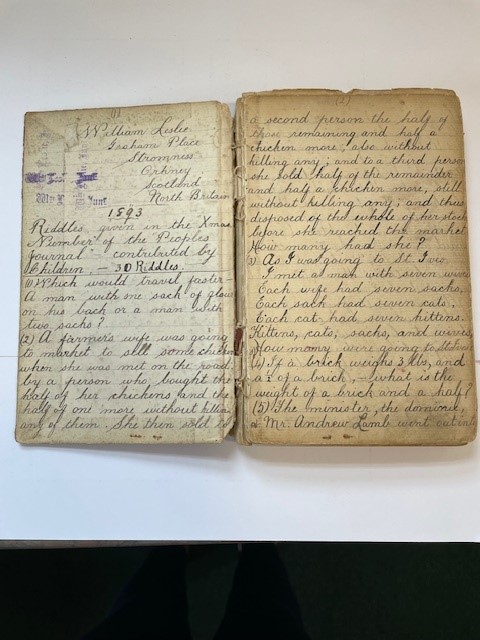 (1)
William Leslie
Graham Place
Stromness
Orkney
Scotland
North Britain
1893
Riddles given in the "Xmas
Number of the Peoples
Journal" contributed by
Children. — 30 Riddles.
(1) Which would travel faster
A man with one sack of
on his back or a man with
two sachs?
(2) A farmer's wife was going
to market to sell some chicken
when she was met on the road
by a person who bought the
half of her chickens and the
half of one more without killing
any of them. She then sold to
(2)
a second person the half of
those remaining and half a
chicken more, also without
killing any; and to a third person
she sold half of the remainder
and half a chicken more, still
without killing any; and thus
disposed of the whole of her stock
before she reached the market
How many had she?
3) As I was going to St. Ives
I met a man with seven wives
Each wife had seven sachs,
Each sach had seven cats,
Each cat had seven kittens.
Kittens, cats, sachs, and wives,
How many were going to St. Ives
(4) If a brick weighs 3 lbs, and
a of a brick, — what is the
weight of a brick and a half?
(5) The minister, the dominie,
& Mr. Andrew Lamb went out